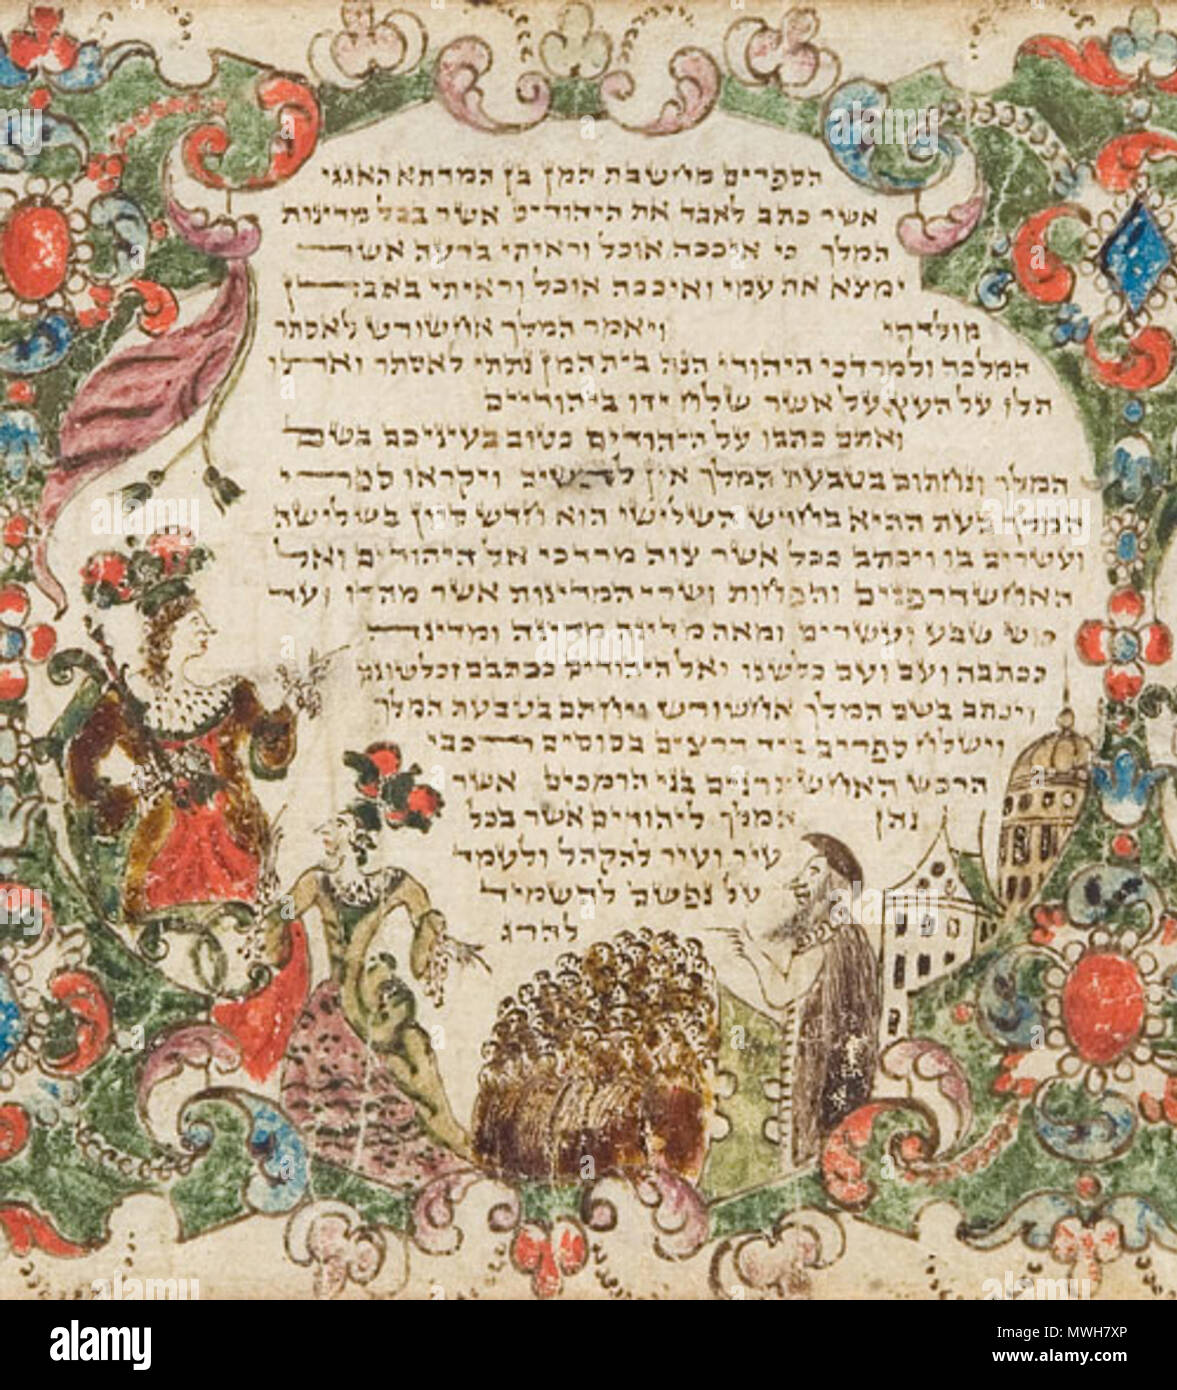 הספרים מחשבת המן בן המדתא האגגי
אשר כתב לאבד את היהודים אשר בכל מדינות
המלך כי איככה אוכל וראיתי ברעה אשר
ימצא את עמי ואיככה אוכל וראיתי באבדן
מולדתי ויאמר המלך אחשורש לאסתר
המלכה ולמרדכי היהודי הנה בית המן נתתי לאסתר ואתו
תלו על העץ על אשר שלח ידו ביהודיים
ואתם כתבו על היהודים כטוב בעיניכם בשם
המלך וחתמו בטבעת המלך אין להשיב ויקראו ספרי
המלך בעת ההיא בחדש השלישי הוא חדש סיון בשלושה
ועשרים בו ויכתב ככל אשר צוה מרדכי אל היהודים ואל
האחשדרפנים והפחות ושרי המדינות אשר מהדו ועד
כוש שבע ועשרים ומאה מדינה מדינה ומדינה
ככתבה ועם ועם כלשנו ואל היהודים ככתבם וכלשונם
ויכתב בשם המלך אחשורש ויחתם בטבעת המלך
וישלח ספרים ביד הרצים בסוסים רכבי
הרכש האחשתרנים בני הרמכים אשר
נתן המלך ליהודים אשר בכל
עיר ועיר להקהל ולעמד
על נפשם להשמיד
להרג
alamy
Image ID: MWH7XP
www.alamy.com